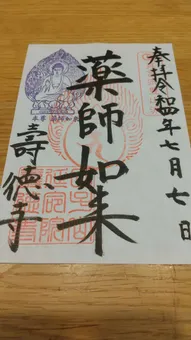 奉拝
令和四年七月七日
本尊 薬師如来
薬師如来
壽徳寺